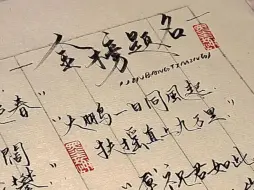 金榜题名
(JINBANGTIMING)
"大鹏一日同风起
扶摇直上九万里"
春"
阁
攀"
祝君如此